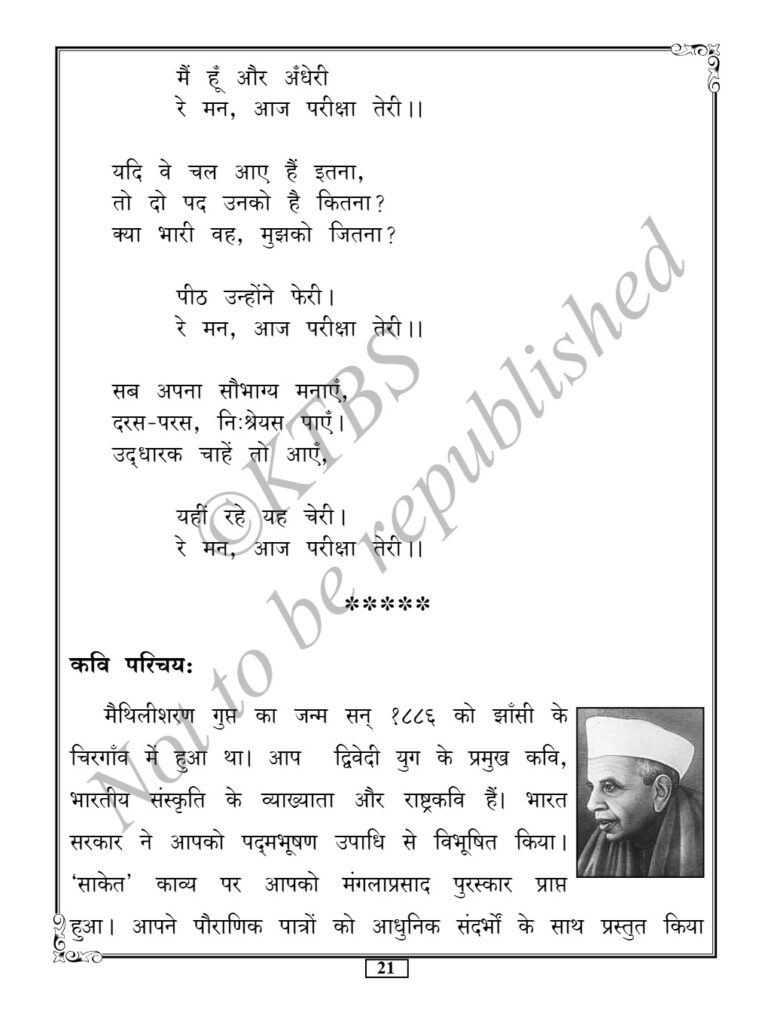 मैं हूँ और अँधेरी
रे मन, आज परीक्षा तेरी।।
यदि वे चल आए हैं इतना,
तो दो पद उनको है कितना?
क्या भारी वह, मुझको जितना?
पीठ उन्होंने फेरी।
रे मन, आज परीक्षा तेरी।।
सब अपना सौभाग्य मनाएँ,
दरस-परस, निःश्रेयस पाएँ।
उद्धारक चाहें तो आएँ,
यहीं रहे यह चेरी।
रे मन, आज परीक्षा तेरी।।
*****
कवि परिचय:
मैथिलीशरण गुप्त का जन्म सन् १८८६ को झाँसी के
चिरगाँव में हुआ था। आप द्विवेदी युग के प्रमुख कवि,
भारतीय संस्कृति के व्याख्याता और राष्ट्रकवि हैं। भारत
सरकार ने आपको पद्मभूषण उपाधि से विभूषित किया।
‘साकेत’ काव्य पर आपको मंगलाप्रसाद पुरस्कार प्राप्त
हुआ। आपने पौराणिक पात्रों को आधुनिक संदर्भों के साथ प्रस्तुत किया
21
©KTBS
Not to be republished